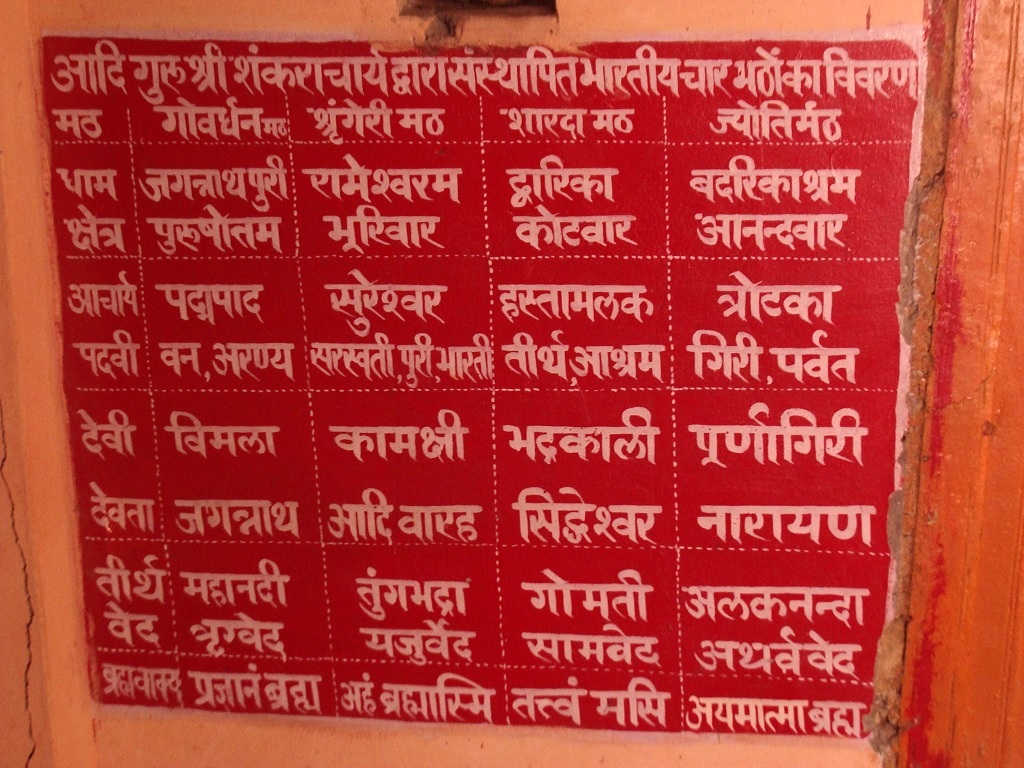 आदि गुरू श्री शंकराचार्य द्वारा संस्थापित भारतीय चार मठों का विवरण
मठ गोवर्धन मठ श्रृंगेरी मठ शारदा मठ ज्योतिर्मठ
धाम जगन्नाथपुरी रामेश्वरम द्वारिका बदरिकाश्रम
क्षेत्र पुरूषोतम भूरिवार कोटवार आनन्दवार
आचार्य पद्मपाद सुरेश्वर हस्तामलक त्रोटका
पदवी वन, अरण्य सरस्वती, पुरी, भारती तीर्थ, आश्रम गिरी, पर्वत
देवी विमला कामक्षी भद्रकाली पूर्णागिरी
देवता जगन्नाथ आदि वारह सिद्धेश्वर नारायण
तीर्थ महानदी तुंगभद्रा गोमती अलकनन्दा
वेद ऋग्वेद यजुर्वेद सामवेद अथर्ववेद
ब्रह्मवाक्य प्रज्ञानं ब्रह्म अहं ब्रह्मास्मि तत्त्वं मसि अयमात्मा ब्रह्म